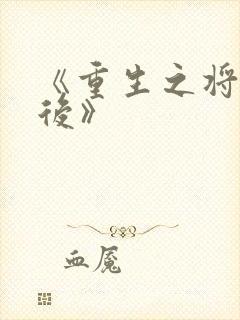 《重生之将
后》
血魇